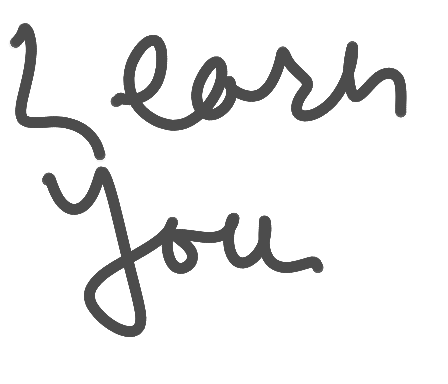 Learn
you